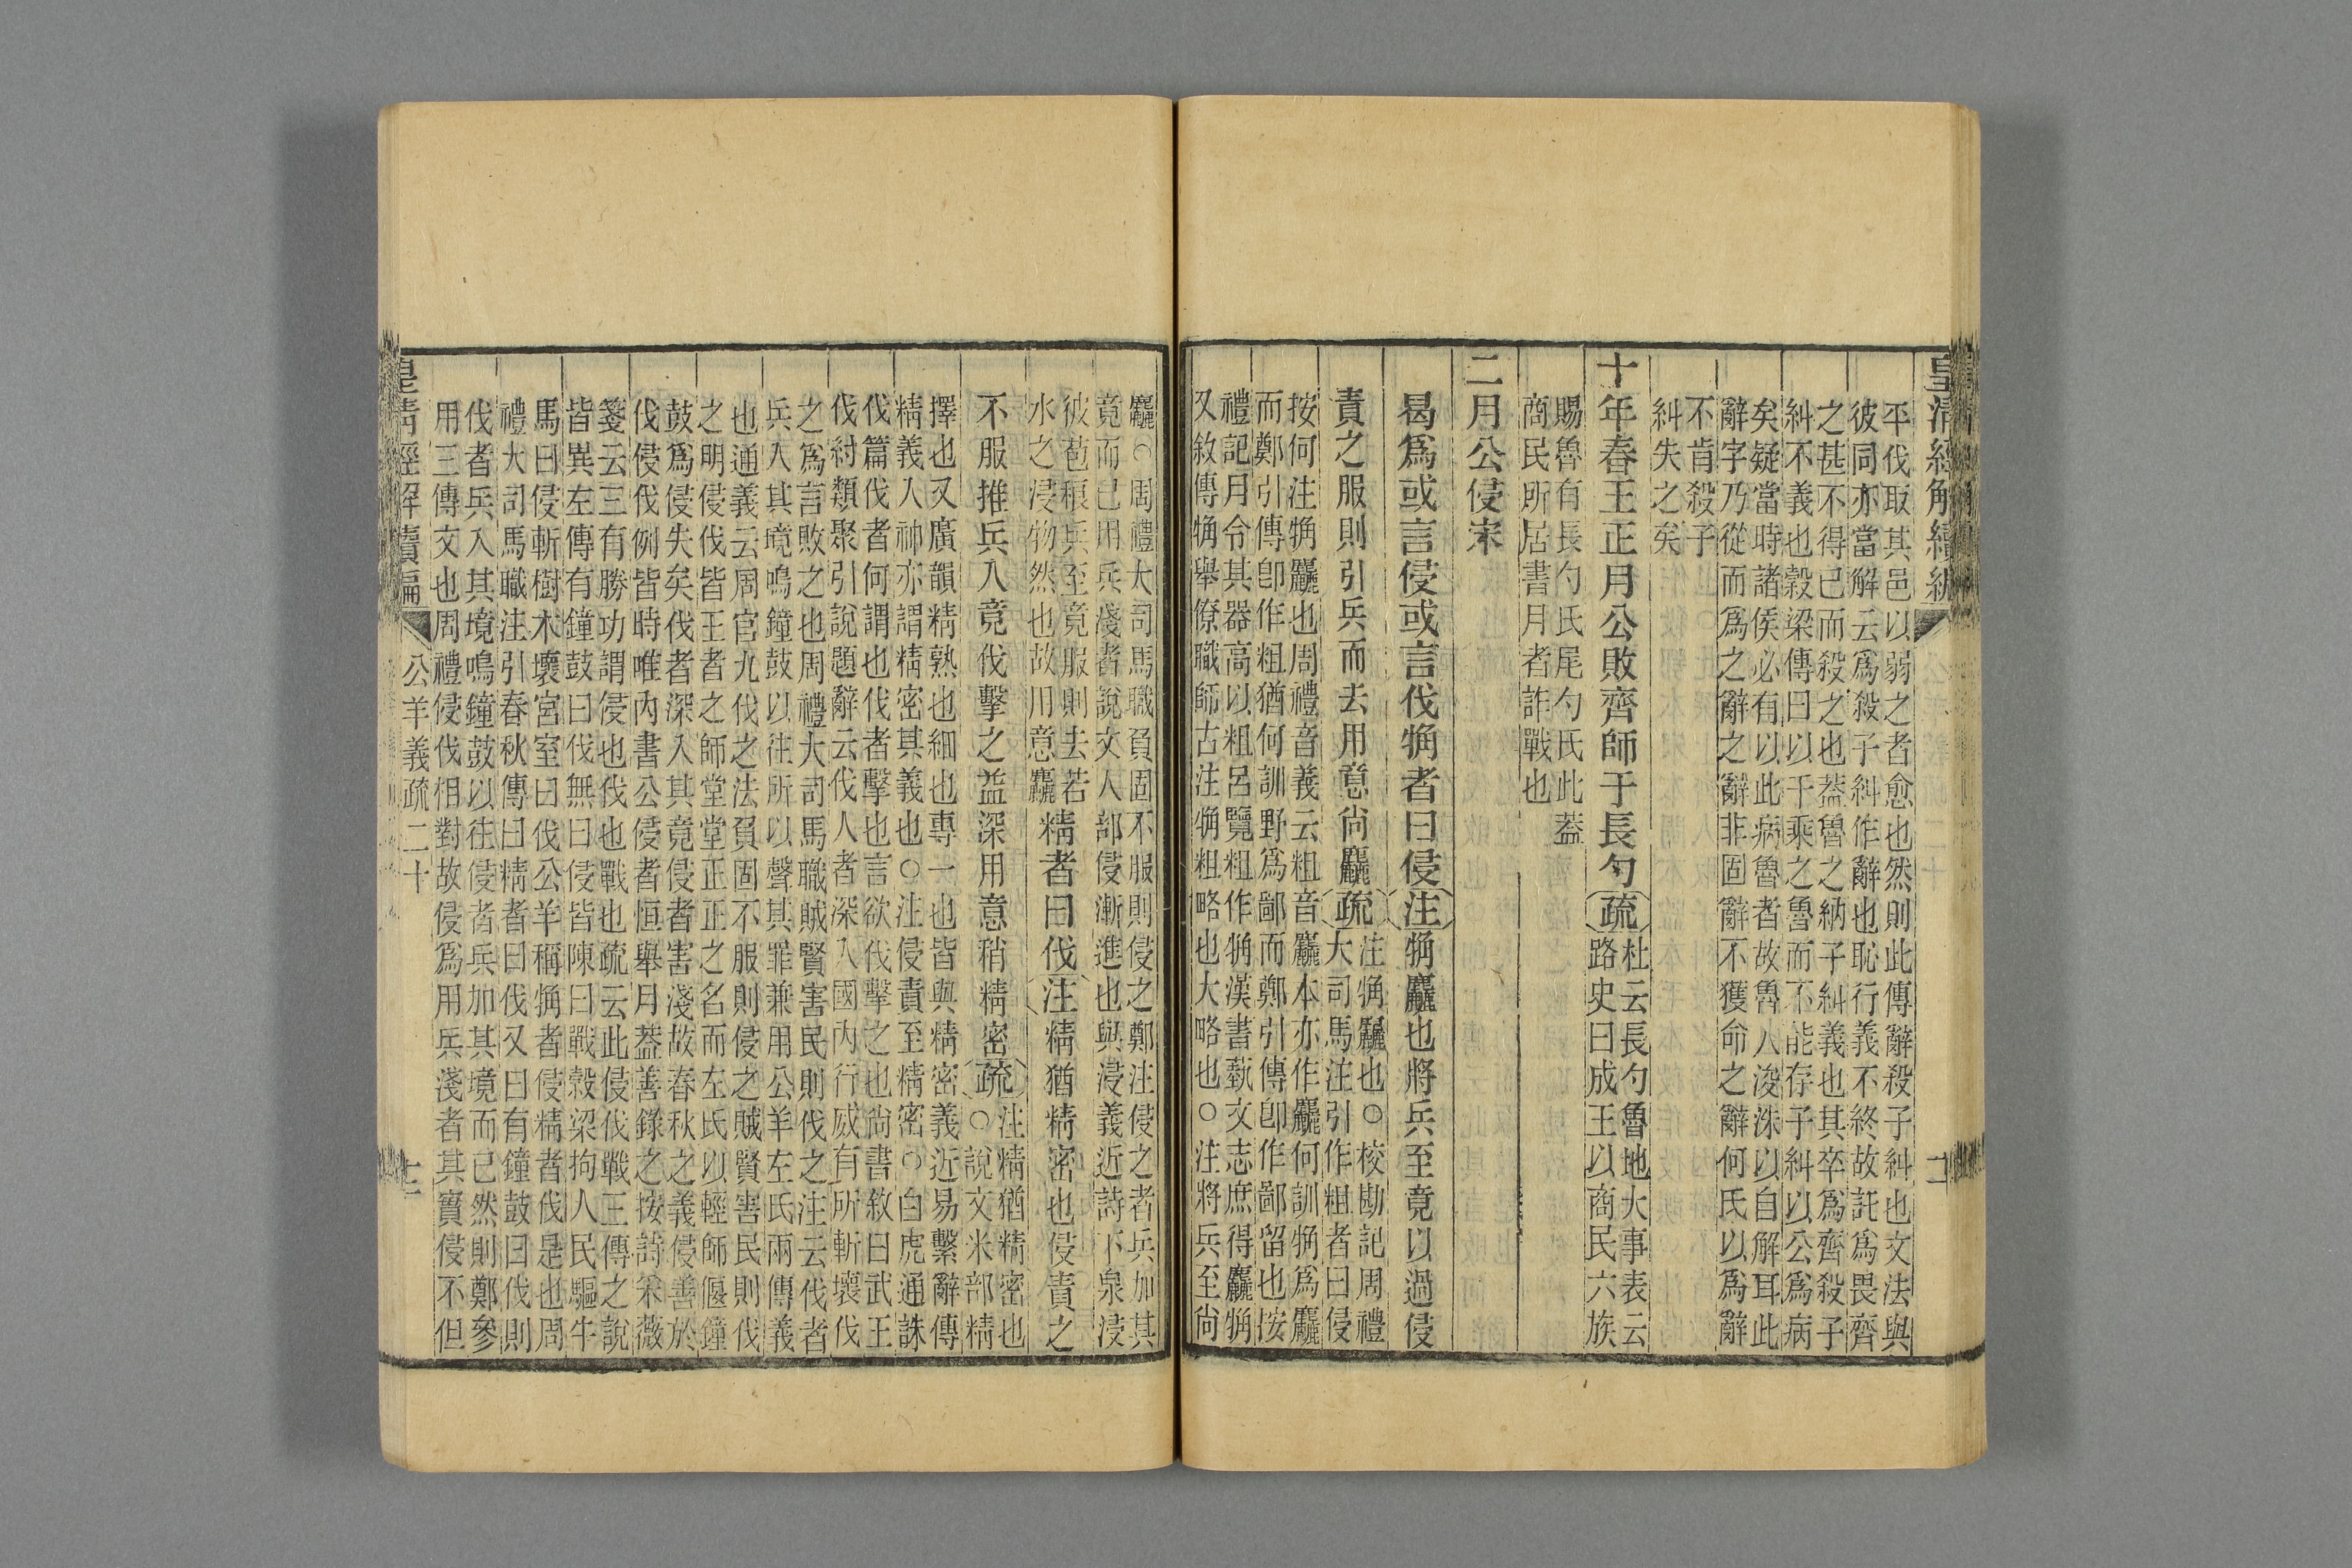 皇清經解續編
平伐取其邑以弱之者愈也然則此傳辭殺子糾也文法與
彼同亦當解云爲殺子糾作辭也恥行義不終故託爲畏齊
之甚不得已而殺之也蓋魯之納子糾義也其卒爲齊殺子
糾不義也穀梁傳曰以千乘之魯而不能存子糾以公爲病
矣疑當時諸侯必有以此病魯者故魯人浚洙以自解耳此
辭字乃從而爲之辭之辭非固辭不獲命之辭何氏以爲辭
不肯殺子
糾失之矣
十年春王正月公敗齊師于長勺疏
杜云長勺魯地大事表云
路史曰成王以商民六族
賜魯有長勺氏尾勺氏此蓋
商民所居書月者詐戰也
二月公侵宋
曷爲或言侵或言伐觕者曰侵注觕麤也將兵至竟以過侵
責之服則引兵而去用意尚麤疏
注觕麤也○校勘記周禮
大司馬注引作粗者曰侵
按何注觕麤也周禮音義云粗音麤本亦作麤何訓觕爲麤
而鄭引傳卽作粗猶何訓野爲鄙而鄭引傳卽作鄙留也按
禮記月令其器高以粗呂覽粗作觕漢書藝文志庶得麤觕
又敘傳觕舉僚職師古注觕粗略也大略也○注將兵至尚
麤○周禮大司馬職負固不服則侵之鄭注侵之者兵加其
竟而已用兵淺者說文人部侵漸進也與浸義近詩下泉浸
彼苞稂兵至竟服則去若
水之浸物然也故用意麤
精者曰伐注精猶精密也侵責之
不服推兵入竟伐擊之益深用意稍精密疏
注精猶精密也
○說文米部精
擇也又廣韻精熟也細也專一也皆與精密義近易繫辭傳
精義入神亦謂精密其義也○注侵責至精密○白虎通誅
伐篇伐者何謂也伐者擊也言欲伐擊之也尚書敘曰武王
伐紂類聚引說題辭云伐人者深入國內行威有所斬壞伐
之爲言敗之也周禮大司馬職賊賢害民則伐之注云伐者
兵入其境鳴鐘鼓以往所以聲其罪兼用公羊左氏兩傳義
也通義云周官九伐之法負固不服則侵之賊賢害民則伐
之明侵伐皆王者之師堂堂正正之名而左氏以輕師偃鐘
鼓爲侵失矣伐者深入其竟侵者害淺故春秋之義侵善於
伐侵伐例皆時唯內書公侵者恒舉月蓋善錄之按詩采薇
箋云三有勝功謂侵也伐也戰也疏云此侵伐戰三傳之說
皆異左傳有鐘鼓曰伐無曰侵皆陳曰戰穀梁拘人民驅牛
馬曰侵斬樹木壞宮室曰伐公羊稱觕者侵精者伐是也周
禮大司馬職注引春秋傳曰精者曰伐又曰有鐘鼓曰伐則
伐者兵入其境鳴鐘鼓以往侵者兵加其境而已然則鄭參
用三傳文也周禮侵伐相對故侵爲用兵淺者其實侵不但
皇清經解續編
公羊義疏二十